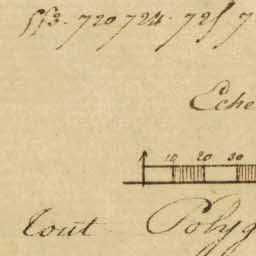 713. 720 724. 725 7
Eche
10 20 30
Tout Polyg